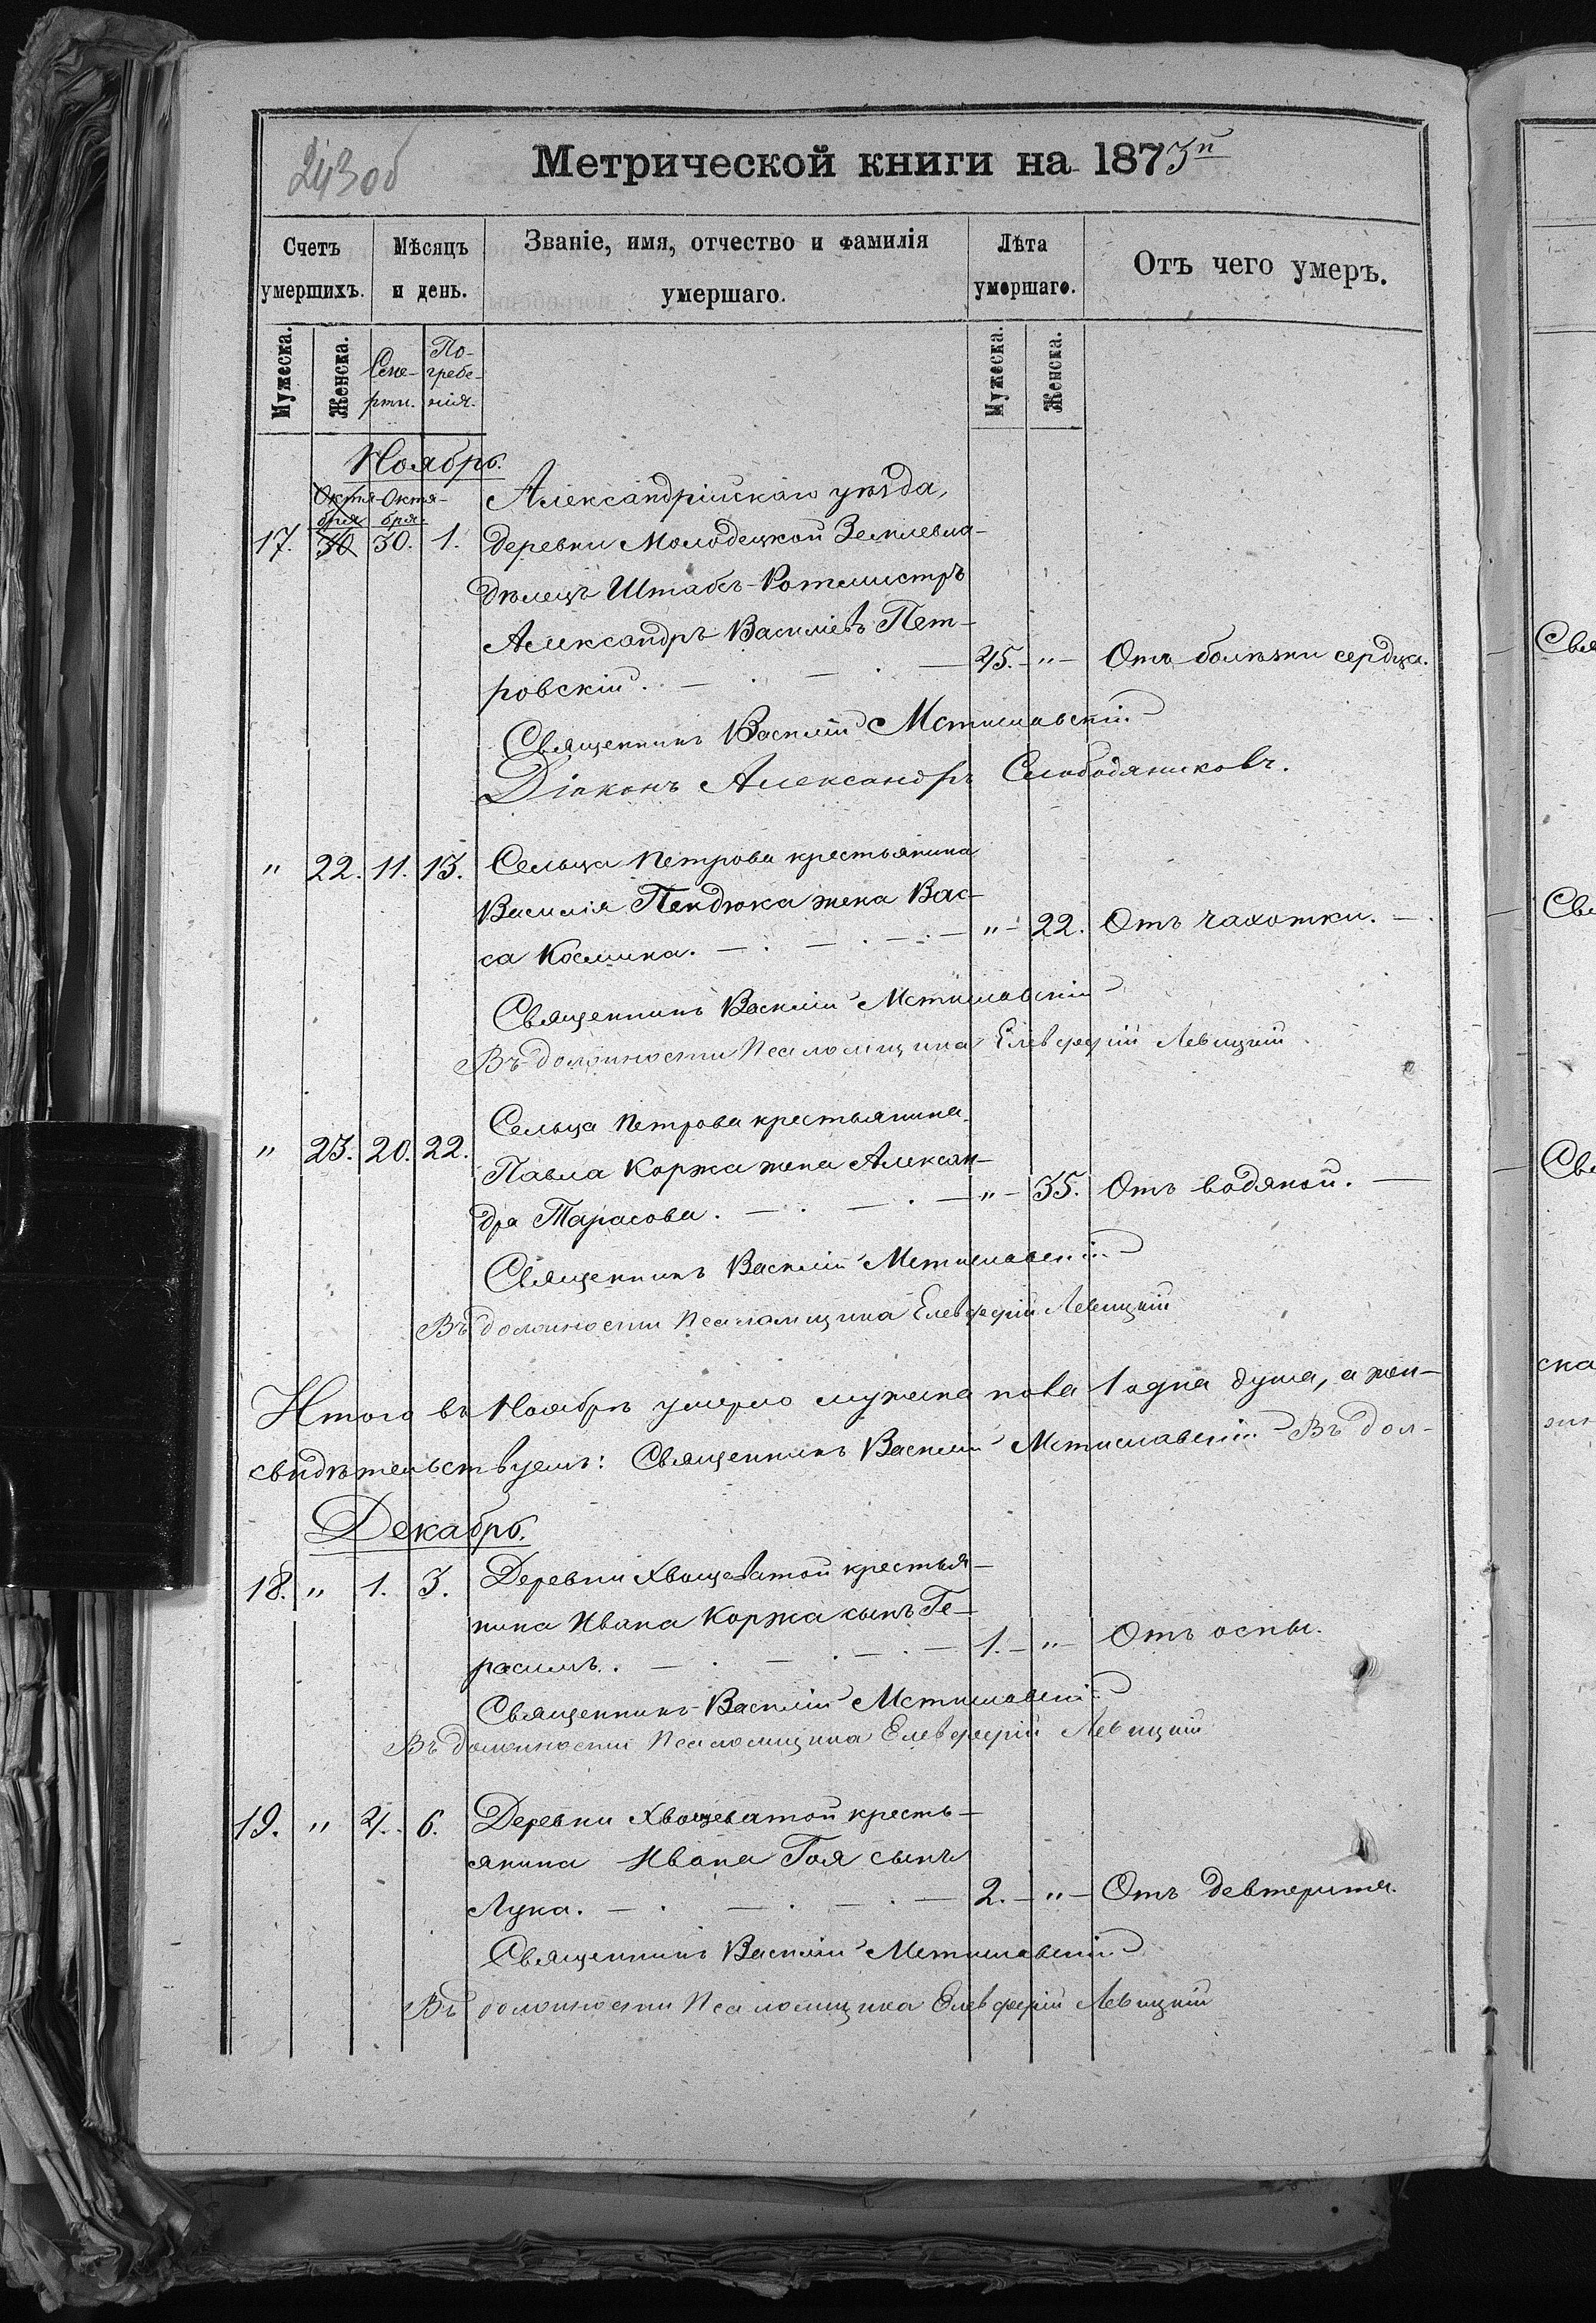 243об
Метрической книги на 1873й
Счетъ умершихъ.
Мѣсяцъ и день.
Званіе, имя, отчество и фамилія умершаго.
Лѣта умершаго.
Отъ чего умеръ.
Мужеска.
Женска.
Смерти.
Погребенія.
Мужеска.
Женска.
Ноябрь.
Октября Октября Александрійскаго уѣзда,
17. 30 30. 1. деревни Молодецкой Землевла-
дѣлецъ Штабсъ-Ротмистръ
Александръ Василіевъ Пет-
ровскій. 45. " Отъ болѣзни сердца.
Священникъ Василій Мстиславскій
Діаконъ Александръ Слободяниковъ.
" 22. 11. 13. Сельца Петрова крестьянина
Василія Пендюка жена Вас-
са Космина. " 22. Отъ чахотки.
Священникъ Василій Мстиславскій
Въ должности Псаломщика Елевферій Левицкій
" 23. 20. 22. Сельца Петрова крестьянина
Павла Коржа жена Алексан-
дра Тарасова. " 35. Отъ водяной.
Священникъ Василій Мстиславскій
Въ должности Псаломщика Елевферій Левицкій
Итого въ Ноябрѣ умерло мужеска пола 1 одна душа, а жен-
свидѣтельствуемъ: Священникъ Василій Мстиславскій Въ дол-
Декабрь.
18. " 1. 3. Деревни Хвощеватой крестья-
нина Ивана Коржа сынъ Ге-
расимъ. 1. " Отъ оспы.
Священникъ Василій Мстиславскій
Въ должности Псаломщика Елевферій Левицкій
19. " 4. 6. Деревни Хвощеватой кресть-
янина Ивана Гоя сынъ
Лука. 2. " Отъ девтерита.
Священникъ Василій Мстиславскій
Въ должности Псаломщика Елевферій Левицкій
Свя
Свя
Свя
ска